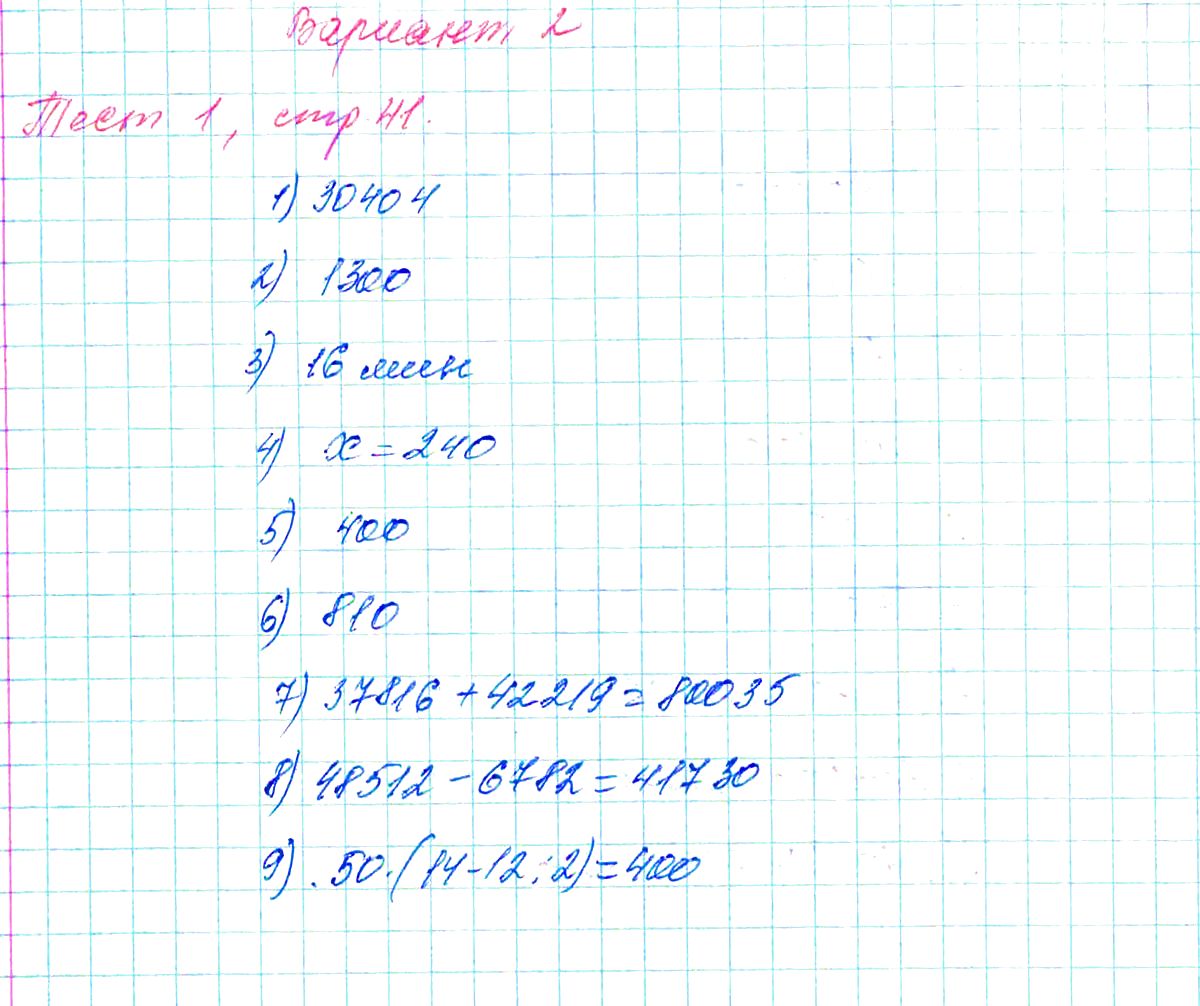 Вариант 2
Тест 1, стр 41.
1) 30404
2) 1300
3) 16 мин
4) x = 240
5) 400
6) 810
7) 37816 + 42219 = 80035
8) 48512 - 6782 = 41730
9) .50·(14-12:2) = 400